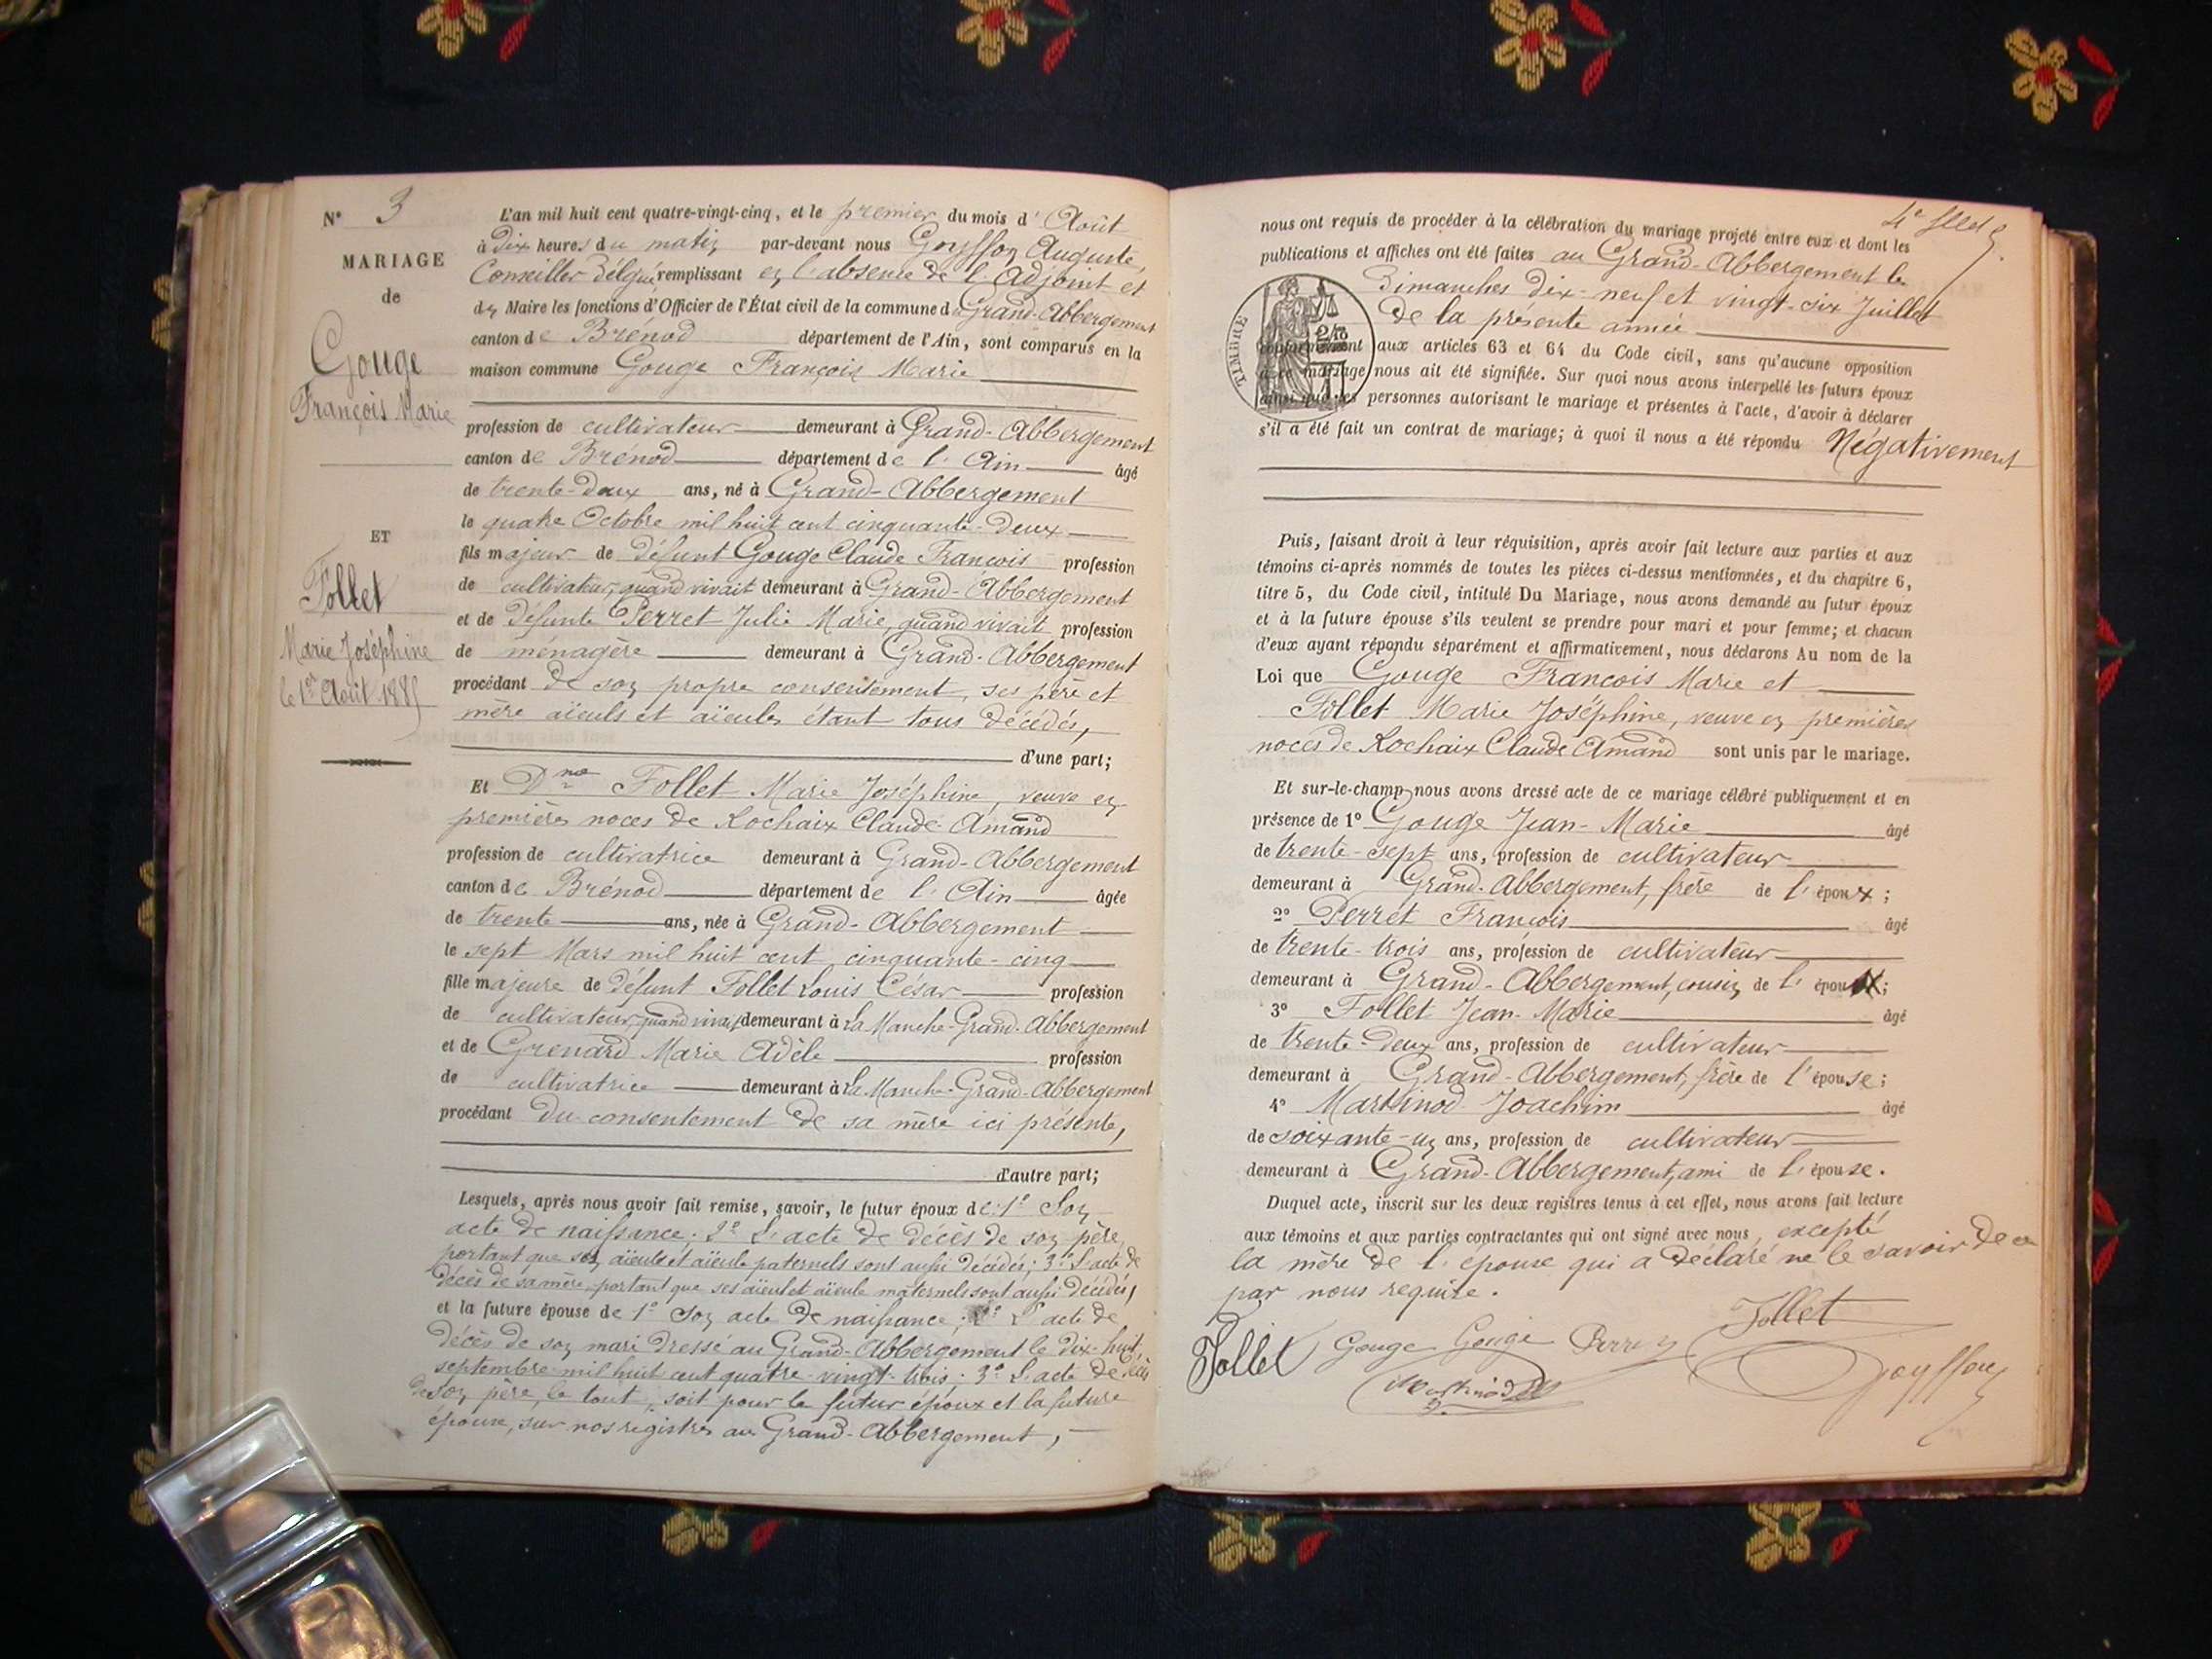 N° 3
MARIAGE
de
Gouge
François Marie
ET
Follet
Marie Joséphine
le 1er Août 1885
L'an mil huit cent quatre-vingt-cinq, et le premier du mois d' Août
à Dix heures du matin par-devant nous Goyffon Auguste,
Conseiller Délégué, remplissant en l'absence de l'Adjoint et
du Maire les fonctions d'Officier de l'État civil de la commune du Grand-Abbergement
canton de Brénod département de l'Ain, sont comparus en la
maison commune Gouge François Marie
profession de cultivateur demeurant à Grand-Abbergement
canton de Brénod département de l'Ain âgé
de trente-deux ans, né à Grand-Abbergement
le quatre Octobre mil huit cent cinquante-deux
fils majeur de défunt Gouge Claude François profession
de cultivateur, quand vivait demeurant à Grand-Abbergement
et de défunte Perret Julie Marie, quand vivait profession
de ménagère demeurant à Grand-Abbergement
procédant de son propre consentement, ses père et
mère aïeuls et aïeules étant tous décédés,
d'une part;
Et Dme Follet Marie Joséphine, veuve en
premières noces de Rochaix Claude Amand
profession de cultivatrice demeurant à Grand-Abbergement
canton de Brénod département de l'Ain âgée
de trente ans, née à Grand-Abbergement
le sept Mars mil huit cent cinquante-cinq
fille majeure de défunt Follet Louis César profession
de cultivateur, quand vivait demeurant à La Manche-Grand-Abbergement
et de Grenard Marie Adèle profession
de cultivatrice demeurant à La Manche-Grand-Abbergement
procédant du consentement de sa mère ici présente,
d'autre part;
Lesquels, après nous avoir fait remise, savoir, le futur époux de: 1° Son
acte de naissance; 2° L'acte de décès de son père,
portant que ses aïeuls et aïeule paternels sont aussi décédés; 3° L'acte de
décès de sa mère, portant que ses aïeul et aïeule maternels sont aussi décédés,
et la future épouse de 1° Son acte de naissance; 2° L'acte de
décès de son mari dressé au Grand-Abbergement le dix-huit
septembre mil huit cent quatre-vingt-trois; 3° L'acte de décès
de son père, le tout, soit pour le futur époux et la future
épouse, sur nos registres au Grand-Abbergement,
4e fllet
nous ont requis de procéder à la célébration du mariage projeté entre eux et dont les
publications et affiches ont été faites au Grand-Abbergement les
Dimanches dix-neuf et vingt-six Juillet
de la présente année
TIMBRE
conformément aux articles 63 et 64 du Code civil, sans qu'aucune opposition
à ce mariage nous ait été signifiée. Sur quoi nous avons interpellé les futurs époux
ainsi que les personnes autorisant le mariage et présentes à l'acte, d'avoir à déclarer
s'il a été fait un contrat de mariage; à quoi il nous a été répondu Négativement
Puis, faisant droit à leur réquisition, après avoir fait lecture aux parties et aux
témoins ci-après nommés de toutes les pièces ci-dessus mentionnées, et du chapitre 6,
titre 5, du Code civil, intitulé Du Mariage, nous avons demandé au futur époux
et à la future épouse s'ils veulent se prendre pour mari et pour femme; et chacun
d'eux ayant répondu séparément et affirmativement, nous déclarons Au nom de la
Loi que Gouge François Marie et
Follet Marie Joséphine, veuve en premières
noces de Rochaix Claude Amand sont unis par le mariage.
Et sur-le-champ nous avons dressé acte de ce mariage célébré publiquement et en
présence de 1° Gouge Jean-Marie âgé
de trente-sept ans, profession de cultivateur
demeurant à Grand-Abbergement, frère de l'époux;
2° Perret François âgé
de trente-trois ans, profession de cultivateur
demeurant à Grand-Abbergement, cousin de l'époux;
3° Follet Jean-Marie âgé
de trente-deux ans, profession de cultivateur
demeurant à Grand-Abbergement, frère de l'épouse;
4° Martinod Joachim âgé
de soixante-un ans, profession de cultivateur
demeurant à Grand-Abbergement, ami de l'épouse.
Duquel acte, inscrit sur les deux registres tenus à cet effet, nous avons fait lecture
aux témoins et aux parties contractantes qui ont signé avec nous, excepté
la mère de l'épouse qui a déclaré ne le savoir de ce
par nous requise.
Follet Gouge Gouge Perret Follet
Martinod Goyffon